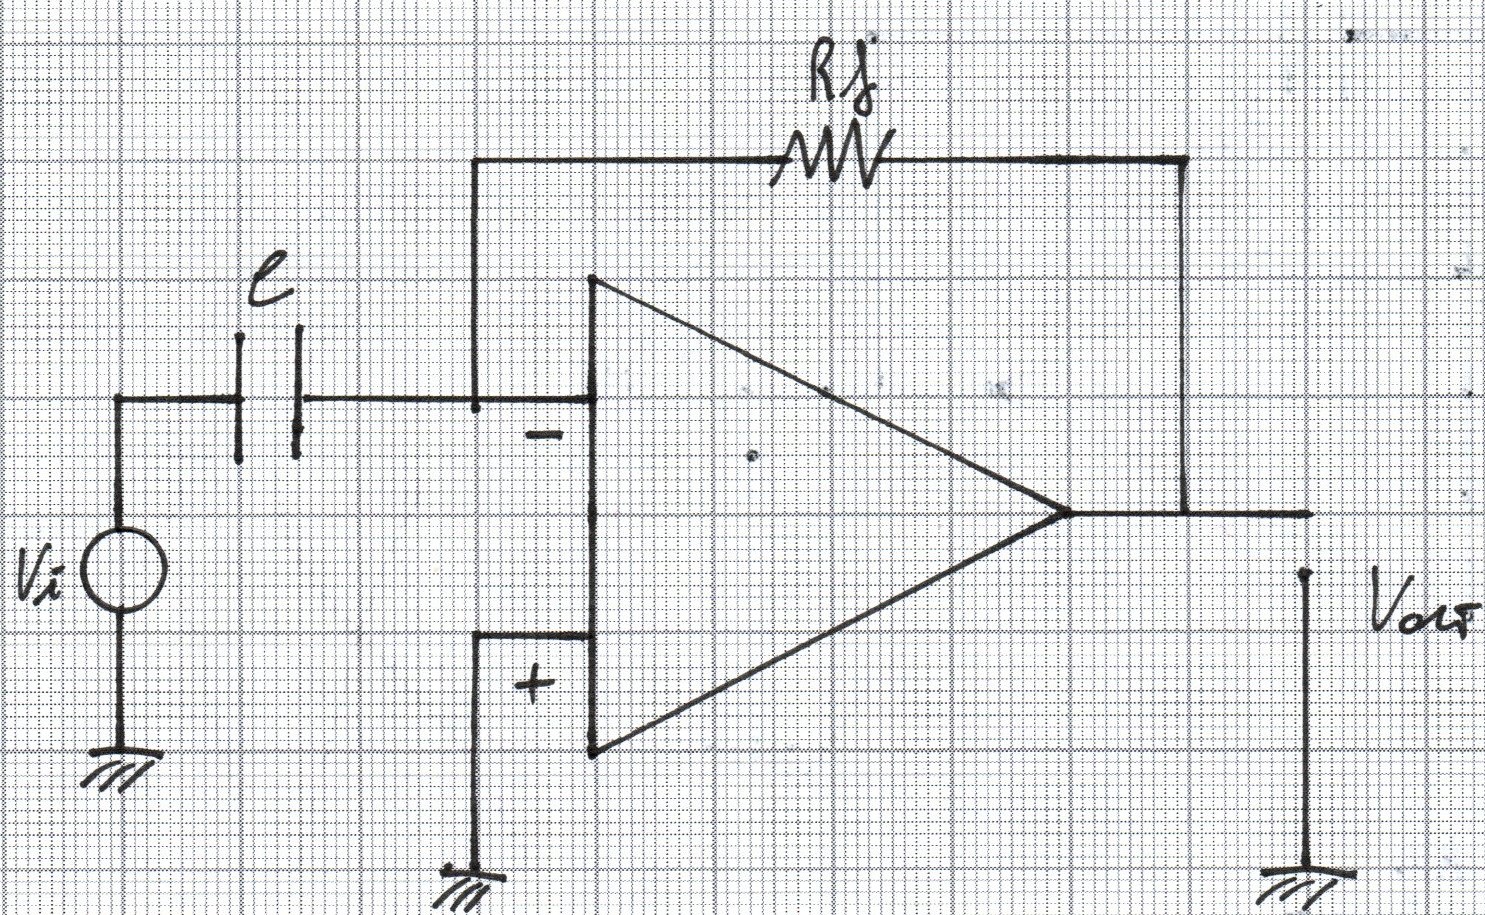 Rf
C
−
Vi
Vout
+